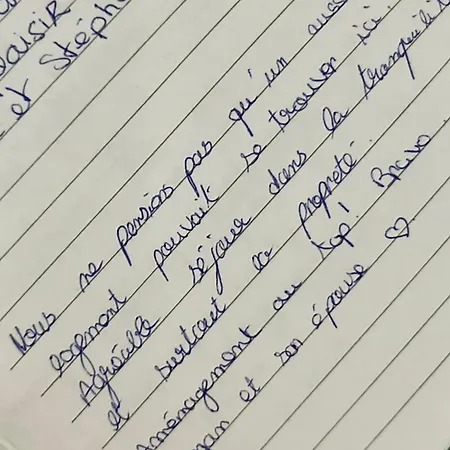 aisir
et Stéph
Nous ne pensions pas qu'un aussi
logement pouvait se trouver ici.
Agréable séjour dans la tranquilit
et surtout la propreté.
Aménagement au top! Bravo
man et son épouse ♡.